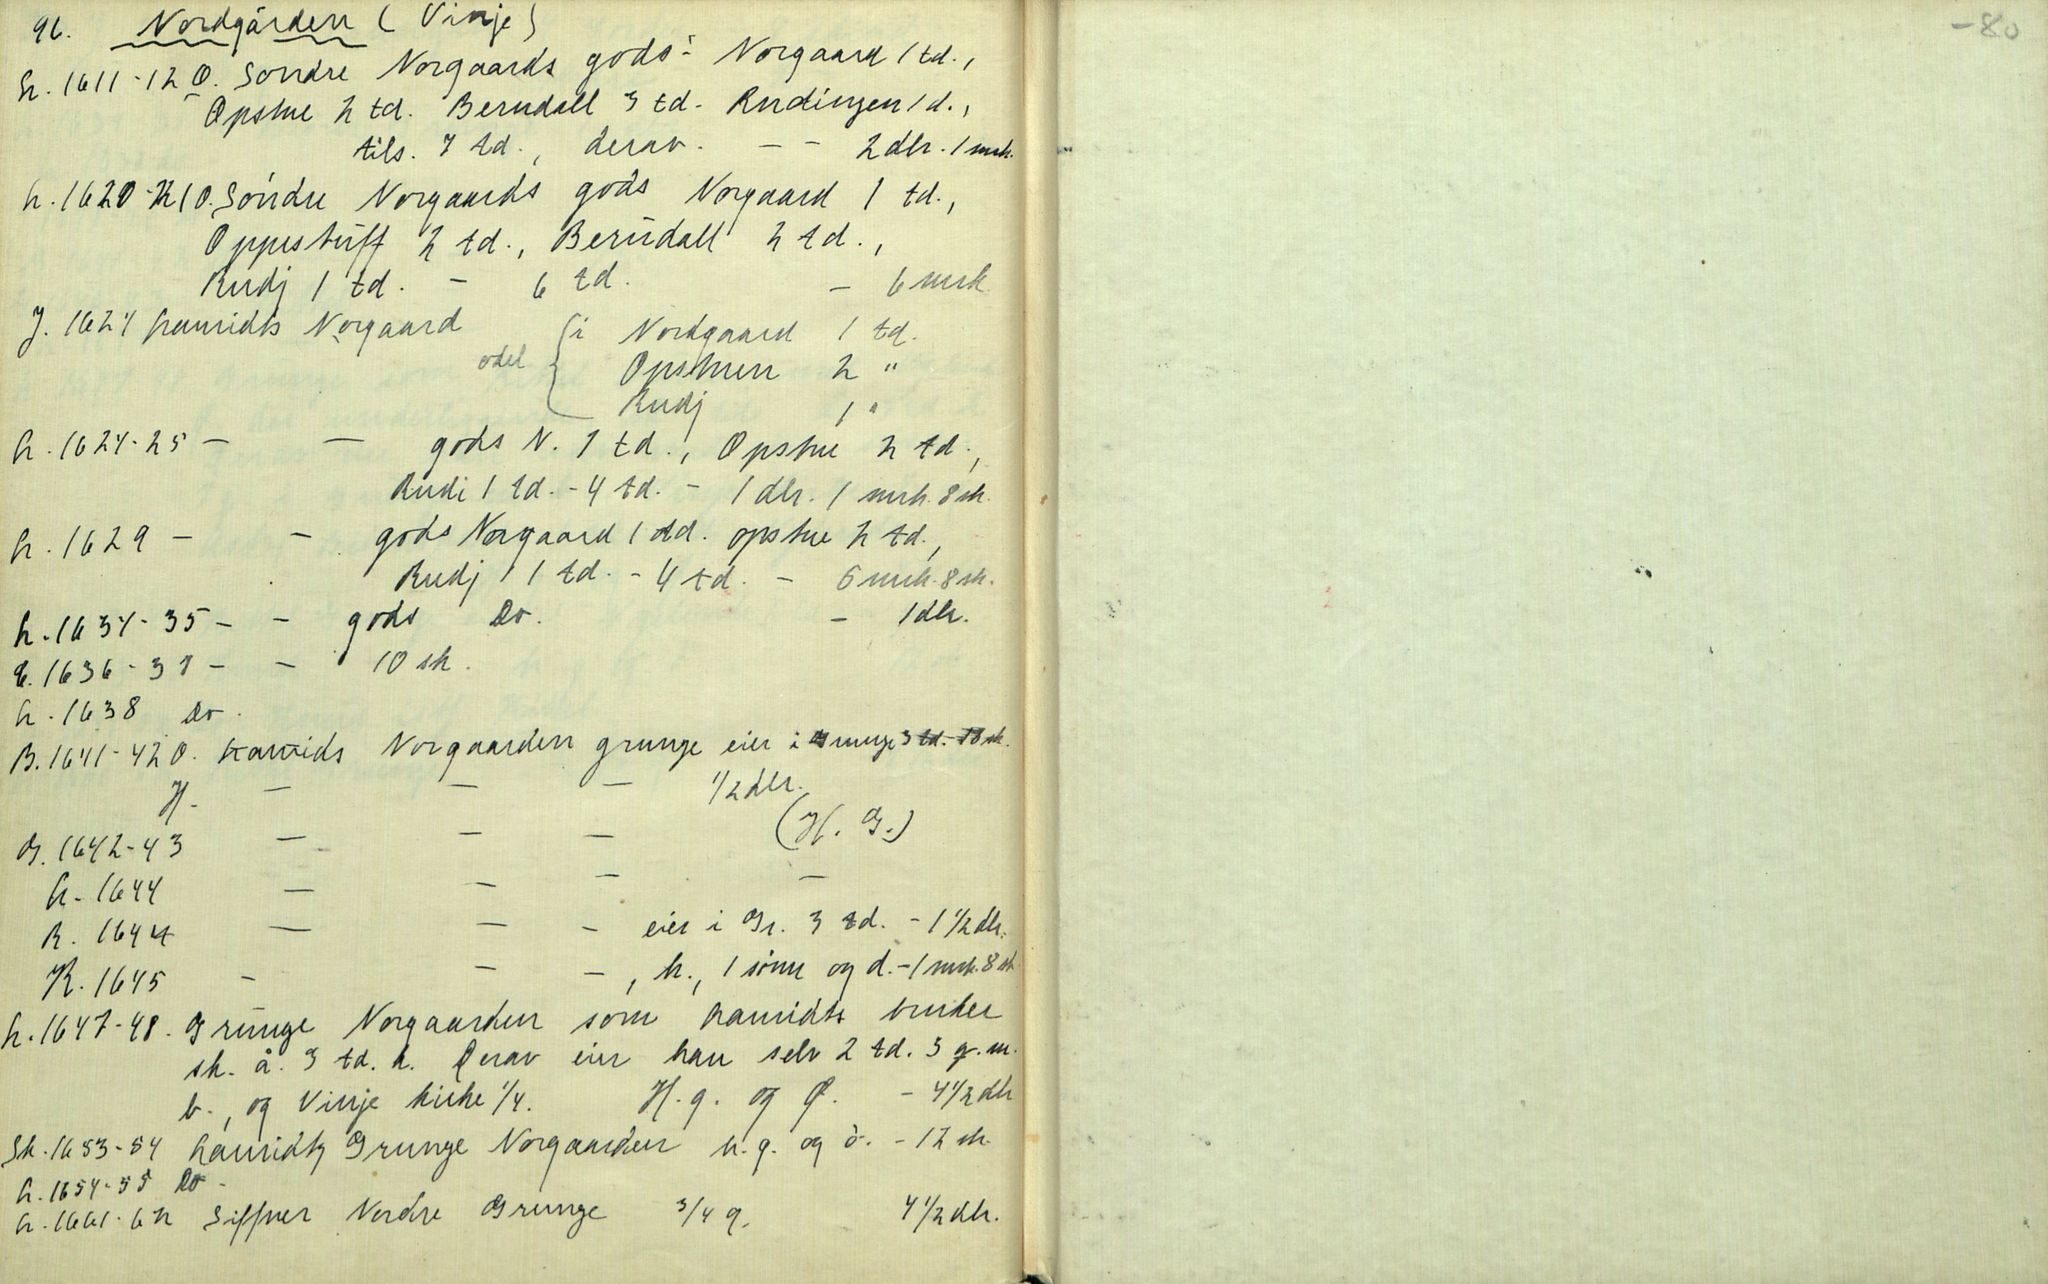 96. Nordgården (Vinje)
h. 1611-12 O. Søndre Norgaards gods: Norgaard 1 td.,
Opstue 2 td. Berudall 3 td. Rudingen 1 d.,
tils. 7 td., derav. — — 2 dlr. 1 mrk.
h. 1620-21 O. Söndre Norgaards gods Norgaard 1 td.,
Oppistuff 2 td., Berüdall 2 td.,
Rudj 1 td. — 6 td. — 6 mrk
J. 1624 Norgaard { i Nordgaard 1 td.
odel Opstuen 2 "
Rudj 1 "
h. 1624-25 — — gods N. 1 td., Opstue 2 td.,
Rudi 1 td. - 4 td. - 1 dlr. 1 mrk. 8 sk.
h. 1629 — — gods Norgaard 1 td. opstue 2 td.,
Rudj 1 td. - 4 td. — 6 mrk. 8 sk.
h. 1634-35 — — gods Do. — 1 dlr.
1636-37 — — 10 sk.
h. 1638 Do.
B. 1641-42 O. Norgaarden grunge eier i Grunge 3 td. 18 sk.
H. — — — 1/2 dlr.
G. 1642-43 — — — (H. G.)
h. 1644 — — — —
R. 1644 — — — eier i Gr. 3 td. - 1 1/2 dlr.
K. 1645 — — —, k., 1 sönn og d. - 1 mrk. 8 sk
h. 1647-48. Grünge Norgaarden som bruker
sk. å. 3 td. h. Derav eier han selv 2 td. 3 q. m.
b., og Vinje kirke 1/4. H. g. og Ø. — 4 1/2 dlr
Sk. 1653-54 Grunge Norgaarden h. g. og ö. - 12 sk.
h. 1654-55 Do.
h. 1661-62 Siffuer Nordre Grunge 3/4 g. 4 1/2 dlr.
-80